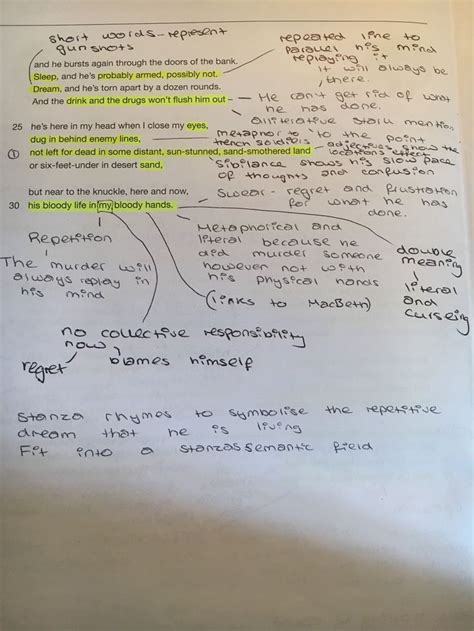 short words - represent
gunshots
repeated line to
parallel his mind
replaying it
It will always be
there.
and he bursts again through the doors of the bank.
Sleep, and he's probably armed, possibly not.
Dream, and he's torn apart by a dozen rounds.
And the drink and the drugs won't flush him out –
He can't get rid of what
he has done.
alliterative
mention
25 he's here in my head when I close my eyes,
dug in behind enemy lines,
metaphor to
trench soldiers
to the point
adjectives show the
locations effect
1 not left for dead in some distant, sun-stunned, sand-smothered land
or six-feet-under in desert sand,
Sibilance shows his slow pace
of thoughts and confusion
but near to the knuckle, here and now,
30 his bloody life in my bloody hands.
Swear - regret and frustration
for what he has
done.
Repetition
The murder will
always replay in
his mind
Metaphorical and
literal because he
did murder someone
however not with
his physical hands
(links to MacBeth)
double
meaning
literal
and
curseing
no collective responsibility
now
blames himself
regret
Stanza rhymes to symbolise the repetitive
dream that he is living
Fit into a stanzas semantic field